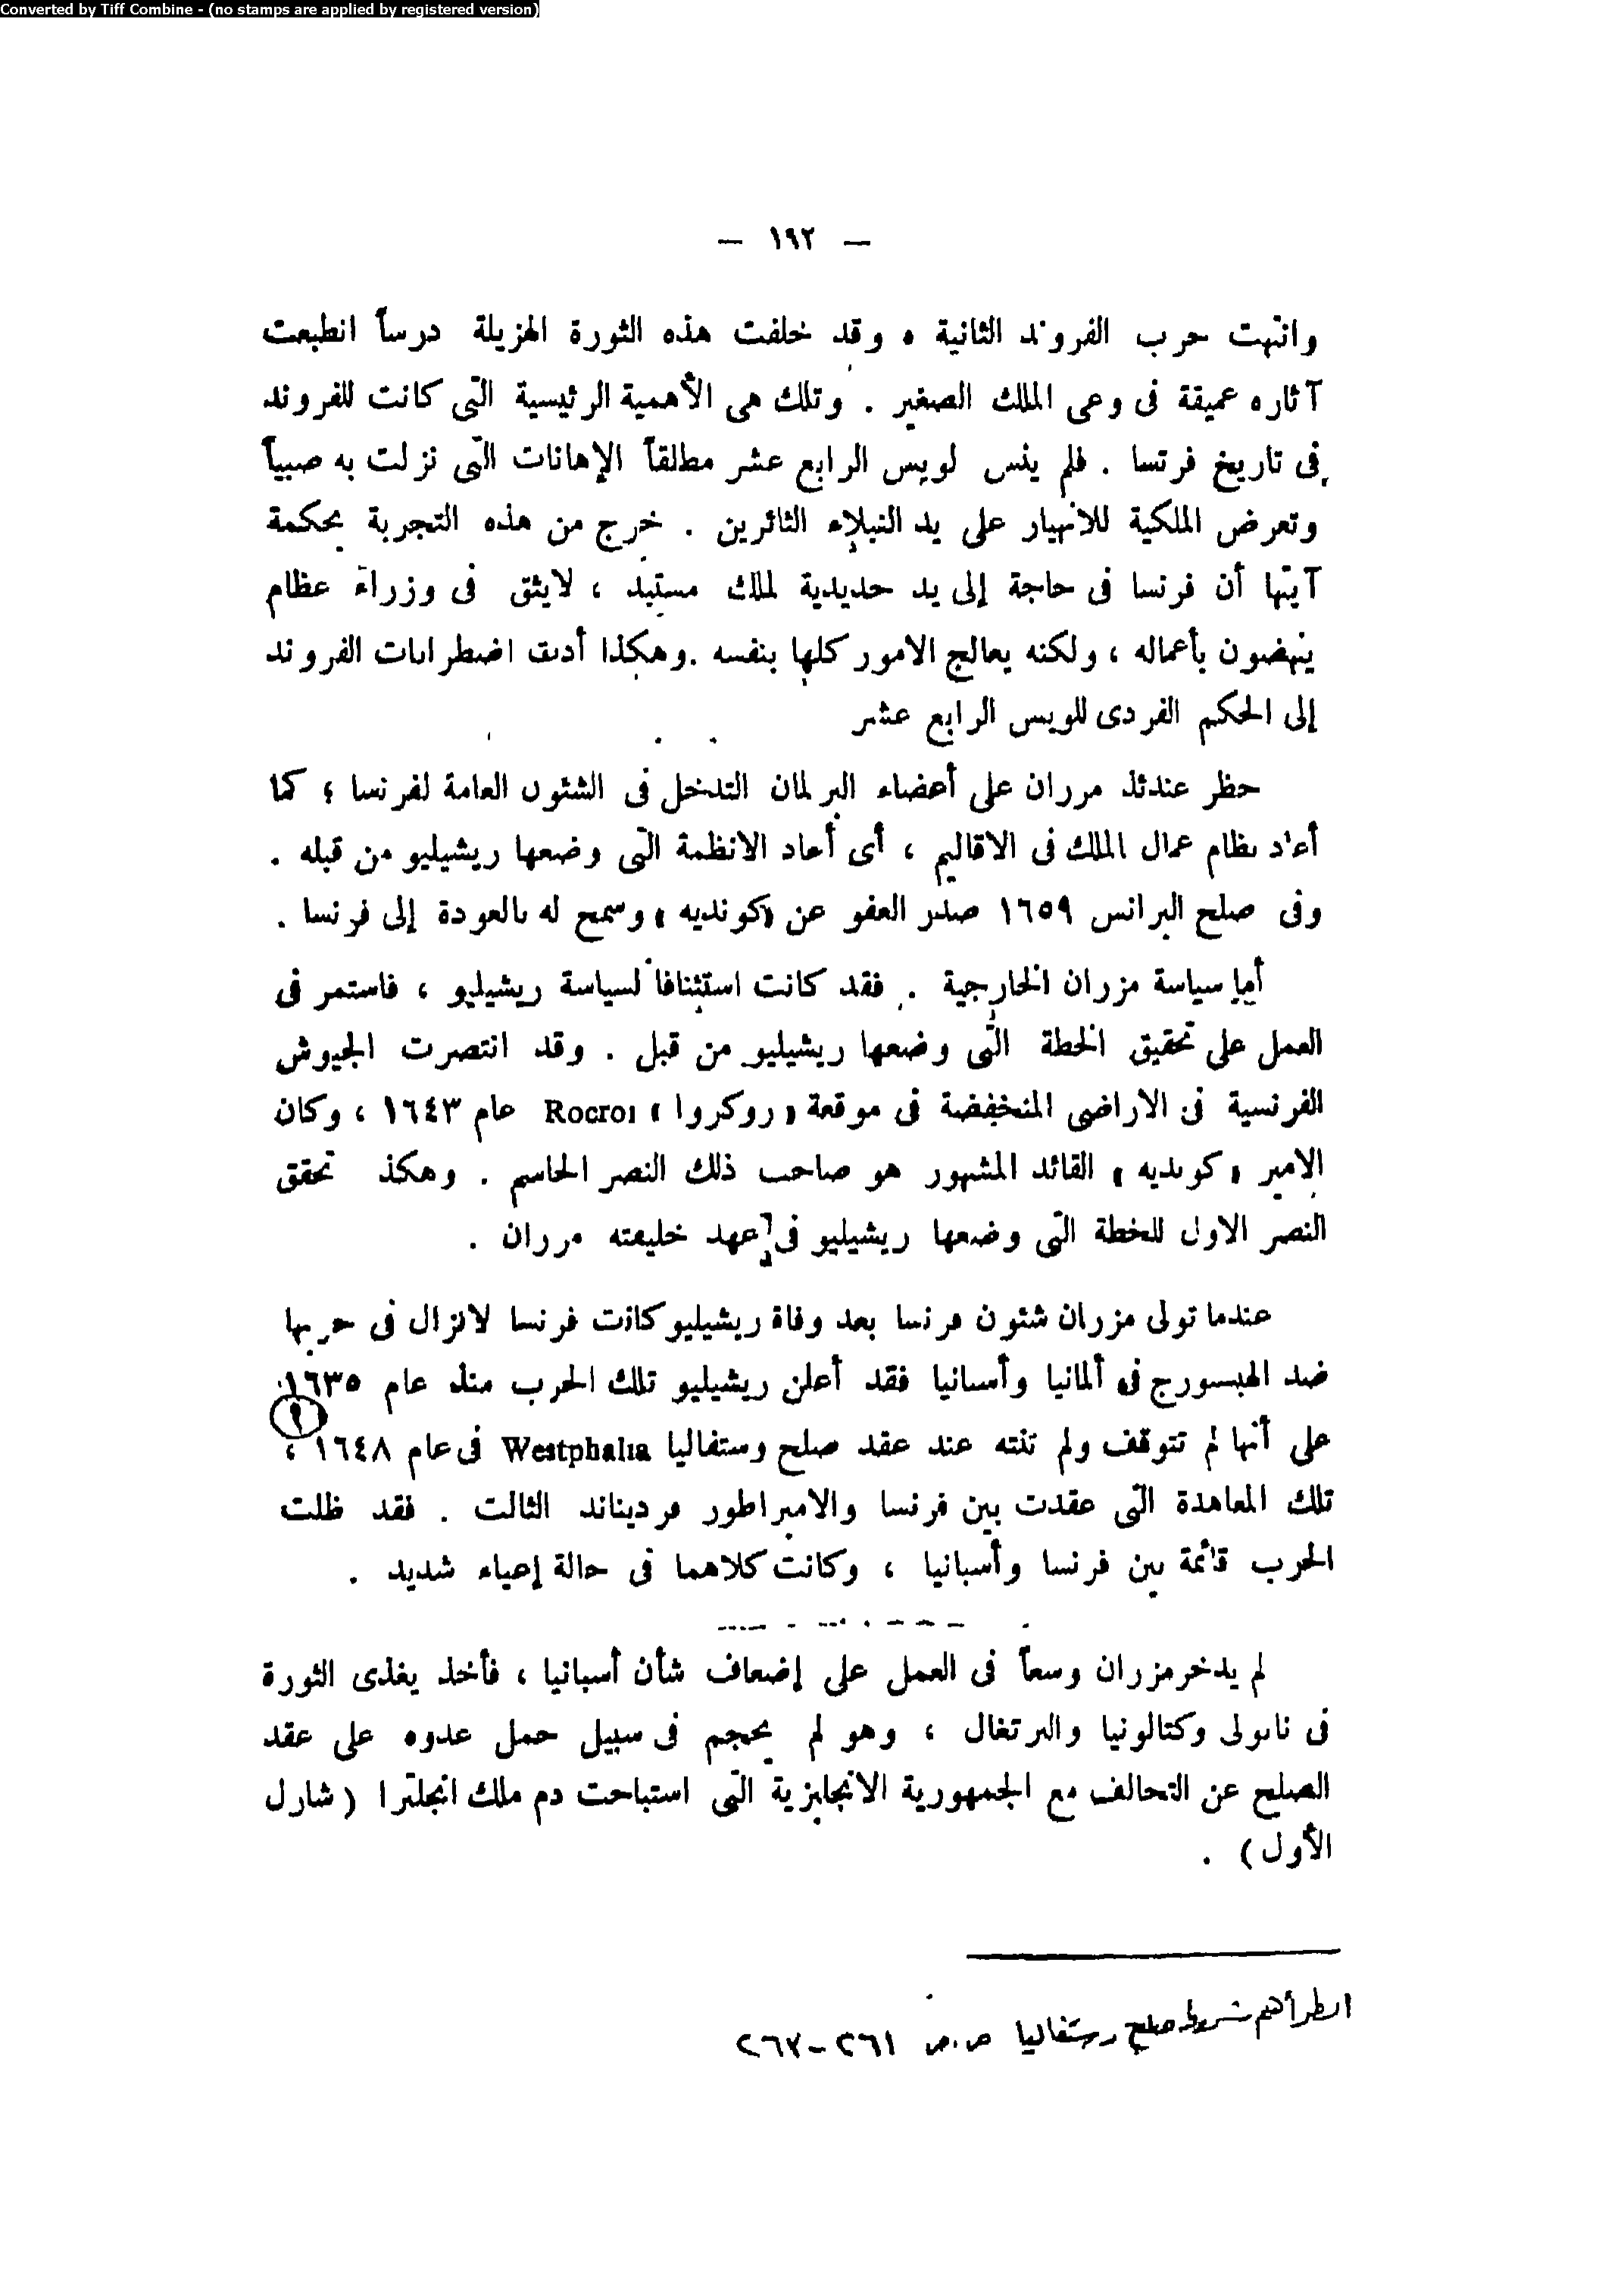 Converted by Tiff Combine - (no stamps are applied by registered version)
— ١٩٢ —
وانتهت حرب الفروند الثانية . وقد خلفت هذه الثورة الهزيلة درساً انطبعت
آثاره عميقة فى وعى الملك الصغير . وتلك هى الأهمية الرئيسية التى كانت للفروند
فى تاريخ فرنسا . فلم ينس لويس الرابع عشر مطلقاً الإهانات التى نزلت به صبياً
وتعرض الملكية للانهيار على يد النبلاء الثائرين . خرج من هذه التجربة بحكمة
آيتها أن فرنسا فى حاجة إلى يد حديدية لملك مستبد ، لايثق فى وزراء عظام
ينهضون بأعماله ، ولكنه يعالج الامور كلها بنفسه . وهكذا أدت اضطرابات الفروند
إلى الحكم الفردى للويس الرابع عشر
حظر عندئذ مزران على أعضاء البرلمان التدخل فى الشئون العامة لفرنسا ؛ كما
أعاد نظام عمال الملك فى الاقاليم ، أى أعاد الانظمة التى وضعها ريشيليو من قبله .
وفى صلح البرانس ١٦٥٩ صدر العفو عن «كونديه» وسمح له بالعودة إلى فرنسا .
أما سياسة مزران الخارجية . فقد كانت استئنافاً لسياسة ريشيليو ، فاستمر فى
العمل على تحقيق الخطة التى وضعها ريشيليو من قبل . وقد انتصرت الجيوش
الفرنسية فى الاراضى المنخفضة فى موقعة «روكروا» Rocroi عام ١٦٤٣ ، وكان
الامير «كونديه» القائد المشهور هو صاحب ذلك النصر الحاسم . وهكذ تحقق
النصر الاول للخطة التى وضعها ريشيليو فى عهد خليفته مزران .
عندما تولى مزران شئون فرنسا بعد وفاة ريشيليو كانت فرنسا لاتزال فى حربها
ضد الهبسورج فى ألمانيا وأسبانيا فقد أعلن ريشيليو تلك الحرب منذ عام ١٦٣٥
على أنها لم تتوقف ولم تنته عند عقد صلح وستفاليا Westphalia فى عام ١٦٤٨ ،
تلك المعاهدة التى عقدت بين فرنسا والامبراطور فرديناند الثالث . فقد ظلت
الحرب قائمة بين فرنسا وأسبانيا ، وكانت كلاهما فى حالة إعياء شديد .
لم يدخر مزران وسعاً فى العمل على إضعاف شأن أسبانيا ، فأخذ يغذى الثورة
فى نابولى وكتالونيا والبرتغال ، وهو لم يحجم فى سبيل حمل عدوه على عقد
الصلح عن التحالف مع الجمهورية الانجليزية التى استباحت دم ملك انجلترا ( شارل
الأول ) .
انظر أهم شروط صلح وستفاليا ص.ص ٢٦١-٢٦٧